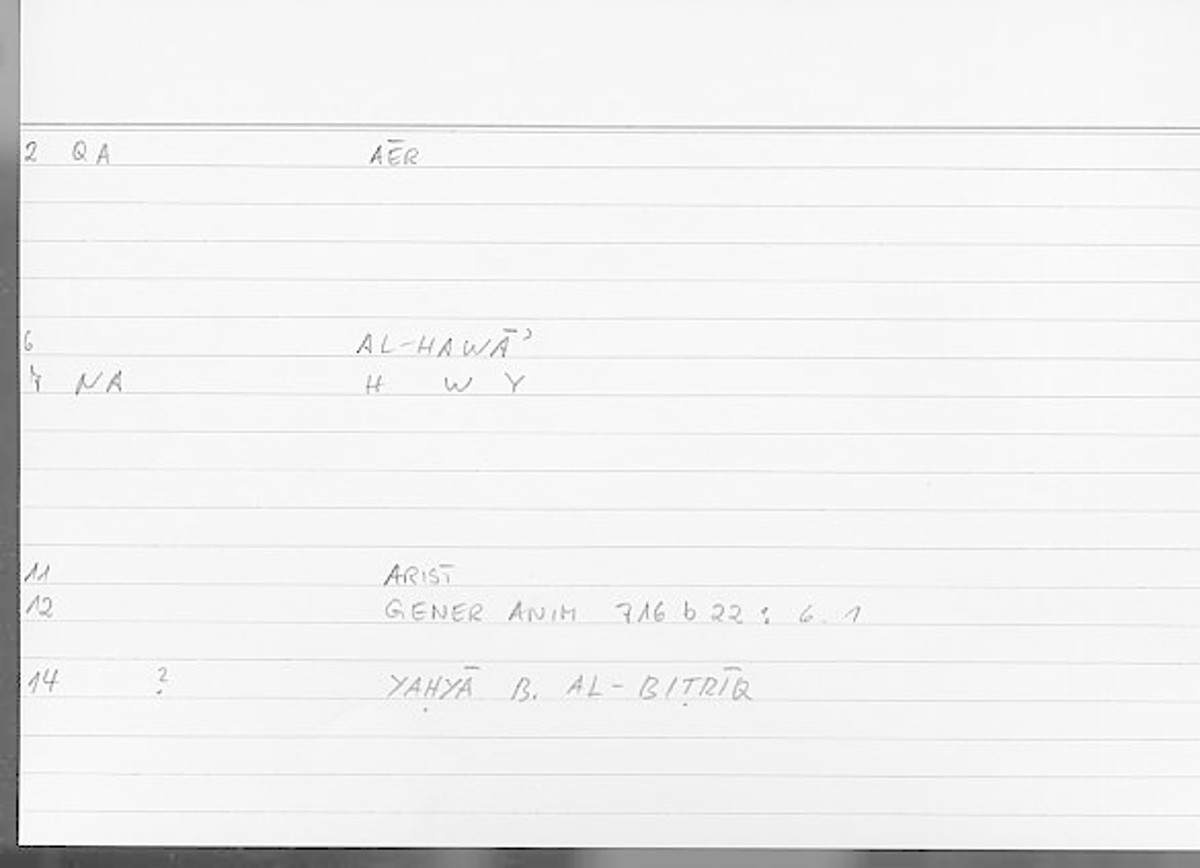 2 QA AĒR
6 AL-HAWĀʾ
7 NA H W Y
11 ARIST
12 GENER ANIM 716 b 22 : 6. 1
14 ? YAḤYĀ B. AL-BIṬRĪQ